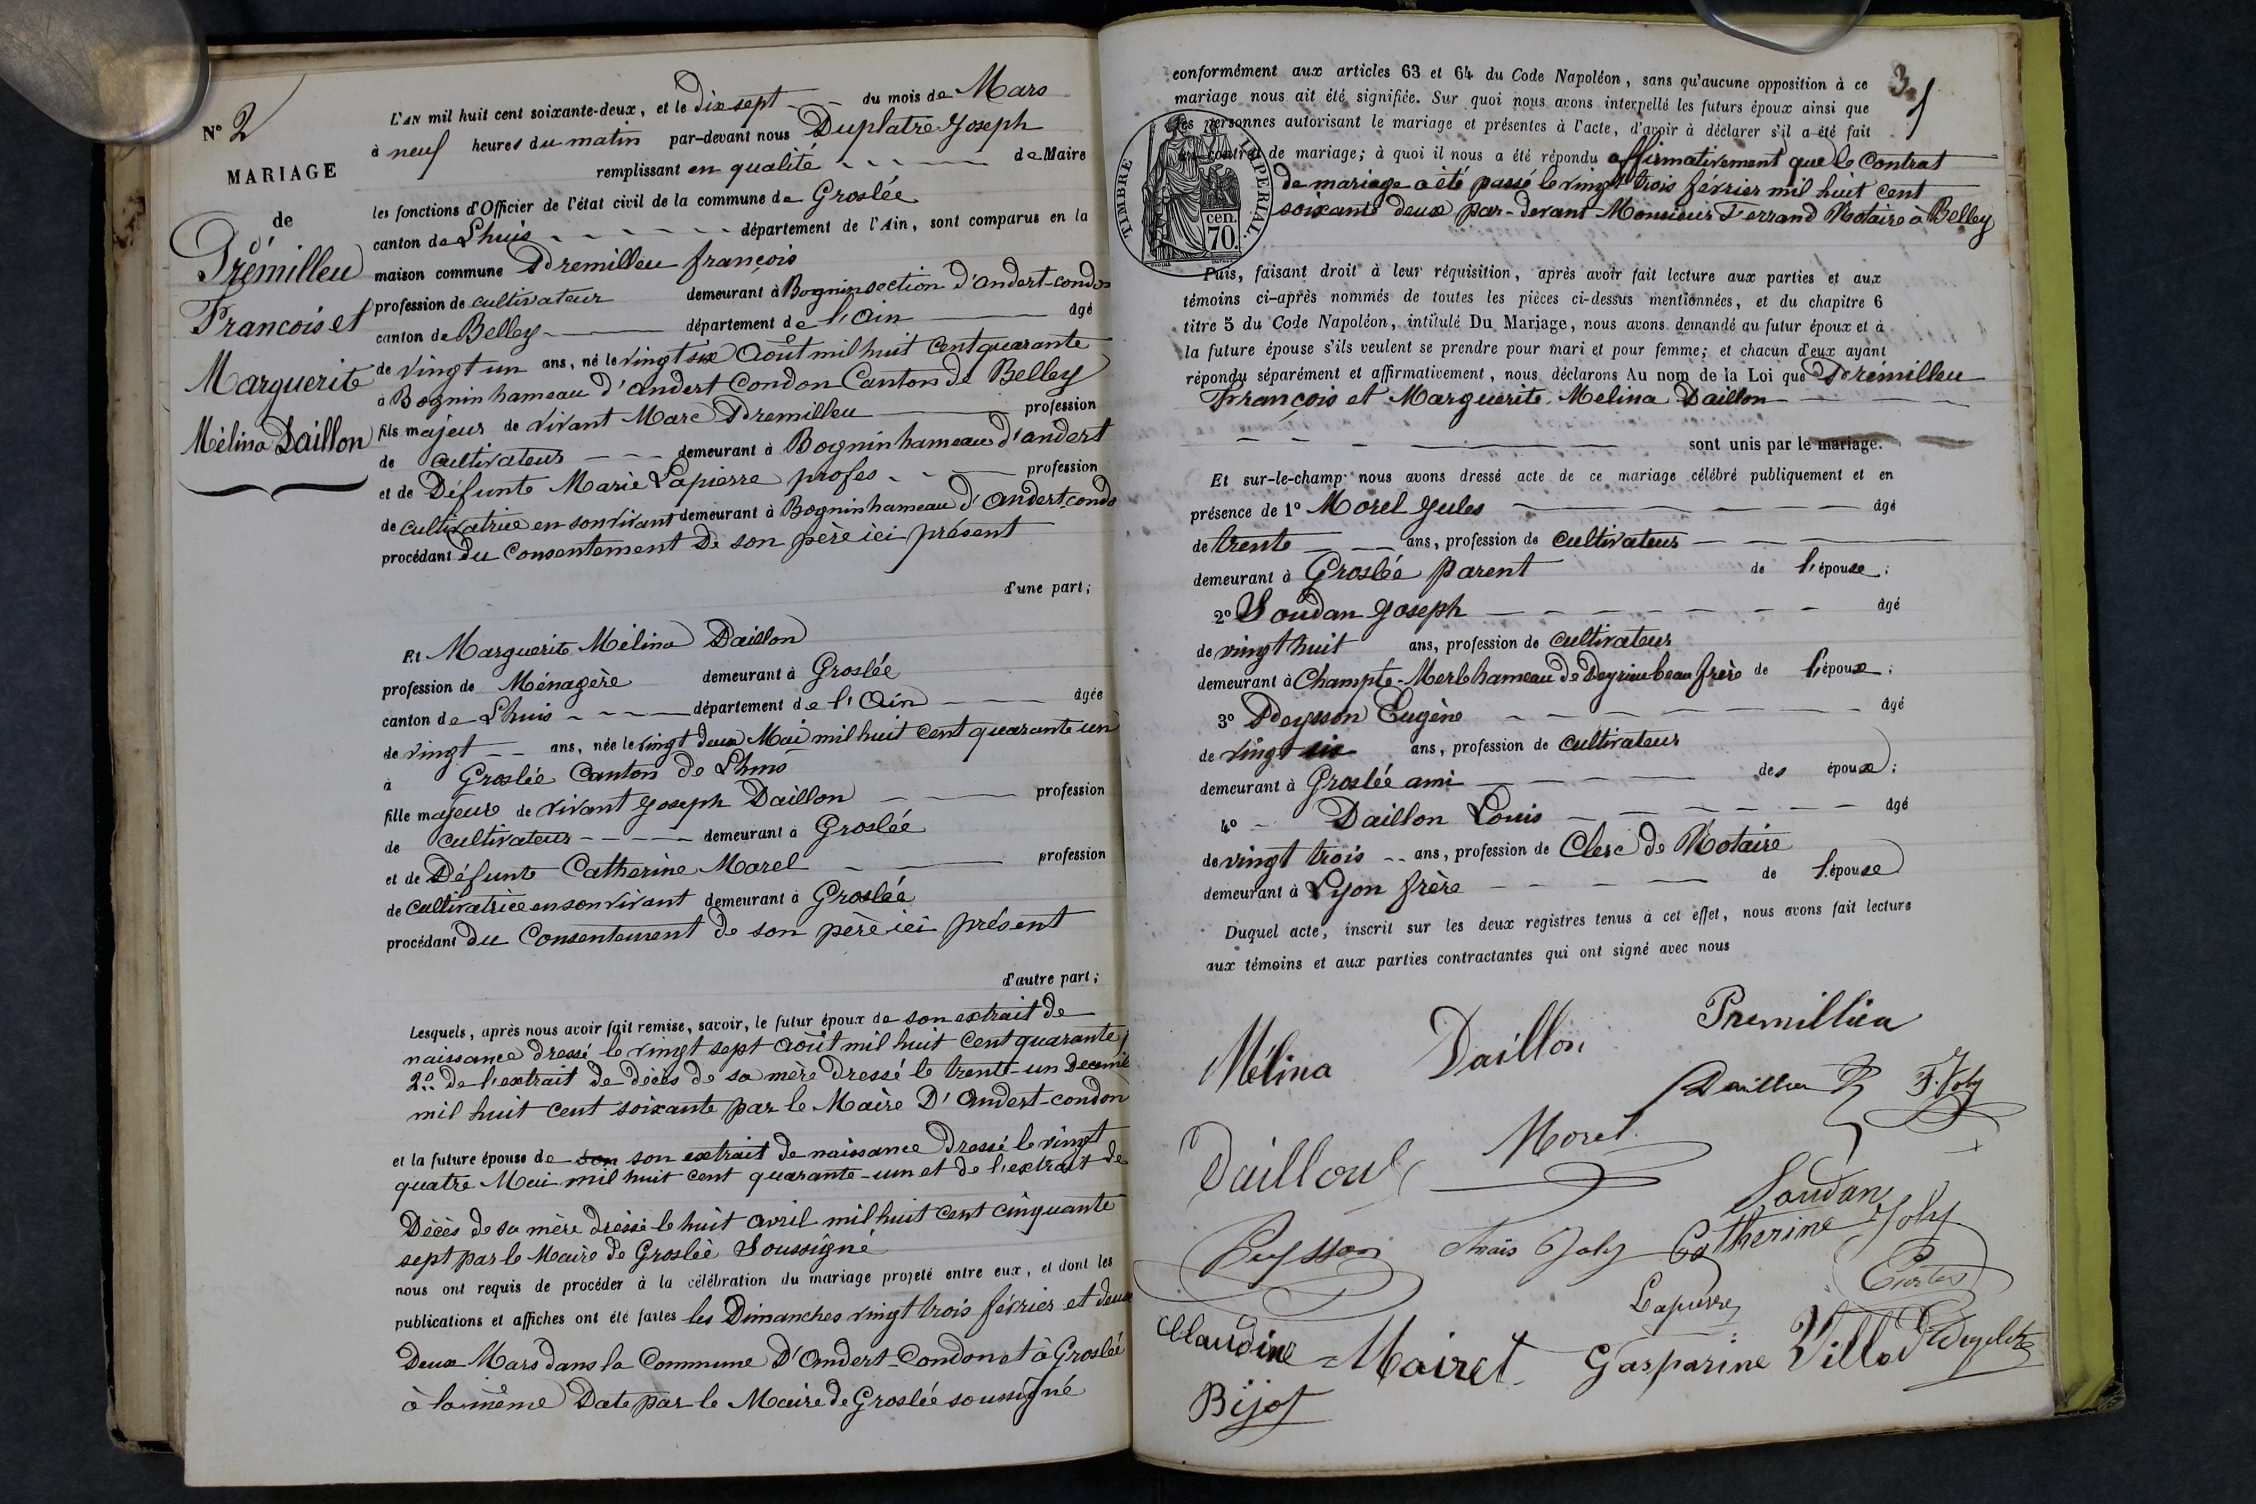 N° 2
MARIAGE
de
Prémilleu
François et
Marguerite
Mélina Daillon
L'AN mil huit cent soixante-deux, et le dix sept du mois de Mars
à neuf heures du matin par-devant nous Duplatre Joseph
remplissant en qualité de Maire
les fonctions d'Officier de l'état civil de la commune de Groslée
canton de Lhuis département de l'Ain, sont comparus en la
maison commune Premilleu françois
profession de cultivateur demeurant à Bognin section d'andert-condon
canton de Belley département de l'Ain âgé
de vingt un ans, né le vingt six Août mil huit cent quarante
à Bognin hameau d'andert Condon Canton de Belley
fils majeur de vivant Marc Premilleu profession
de cultivateur demeurant à Bognin hameau d'andert
et de Défunte Marie Lapierre profes profession
de cultivatrice en son vivant demeurant à Bognin hameau d'andert cond
procédant du Consentement de son père ici présent
d'une part;
Et Marguerite Mélina Daillon
profession de Ménagère demeurant à Groslée
canton de Lhuis département de l'Ain âgée
de vingt ans, née le vingt deux Mai mil huit cent quarante un
à Groslée Canton de Lhuis
fille majeure de vivant Joseph Daillon profession
de cultivateur demeurant à Groslée
et de Défunte Catherine Morel profession
de cultivatrice en son vivant demeurant à Groslée
procédant du Consentement de son père ici présent
d'autre part;
Lesquels, après nous avoir fait remise, savoir, le futur époux de son extrait de
naissance dressé le vingt sept août mil huit cent quarante
2° de l'extrait de décès de sa mère dressé le trente-un Decemb
mil huit cent soixante par le Maire D'Andert-condon
et la future épouse de son son extrait de naissance dressé le vingt
quatre Mai mil huit cent quarante-un et de l'extrait de
Décès de sa mère dressé le huit avril mil huit cent cinquante
sept par le Maire de Groslée Soussigné
nous ont requis de procéder à la célébration du mariage projeté entre eux, et dont les
publications et affiches ont été faites les Dimanches vingt trois février et deux
Deux Mars dans la Commune D'Andert-Condon et à Groslée
à la même Date par le Maire de Groslée soussigné
3
conformément aux articles 63 et 64 du Code Napoléon, sans qu'aucune opposition à ce
mariage nous ait été signifiée. Sur quoi nous avons interpellé les futurs époux ainsi que
les personnes autorisant le mariage et présentes à l'acte, d'avoir à déclarer s'il a été fait
un contrat de mariage; à quoi il nous a été répondu affirmativement que le contrat
de mariage a été passé le vingt trois février mil huit cent
soixante deux par-devant Monsieur Ferrand Notaire à Belley
TIMBRE IMPERIAL
cen.
70.
Puis, faisant droit à leur réquisition, après avoir fait lecture aux parties et aux
témoins ci-après nommés de toutes les pièces ci-dessus mentionnées, et du chapitre 6
titre 5 du Code Napoléon, intitulé Du Mariage, nous avons demandé au futur époux et à
la future épouse s'ils veulent se prendre pour mari et pour femme; et chacun d'eux ayant
répondu séparément et affirmativement, nous déclarons Au nom de la Loi que Prémilleu
François et Marguerite Melina Daillon
sont unis par le mariage.
Et sur-le-champ nous avons dressé acte de ce mariage célébré publiquement et en
présence de 1° Morel Jules âgé
de trente ans, profession de cultivateur
demeurant à Groslée parent de l'épouse;
2° Soudan Joseph âgé
de vingt huit ans, profession de cultivateur
demeurant à Champte-Merle hameau de Peyrieu beau frère de l'époux;
3° Peysson Eugène âgé
de vingt six ans, profession de cultivateur
demeurant à Groslée ami des époux;
4° Daillon Louis âgé
de vingt trois ans, profession de Clerc de Notaire
demeurant à Lyon frère de l'épouse
Duquel acte, inscrit sur les deux registres tenus à cet effet, nous avons fait lecture
aux témoins et aux parties contractantes qui ont signé avec nous
Mélina Daillon Premillieu
Daillon F. Joly
Daillon Morel
Soudan
Peysson Joly Catherine Joly
Lapierre
Claudine Mairet Gasparine Villod
Bijot